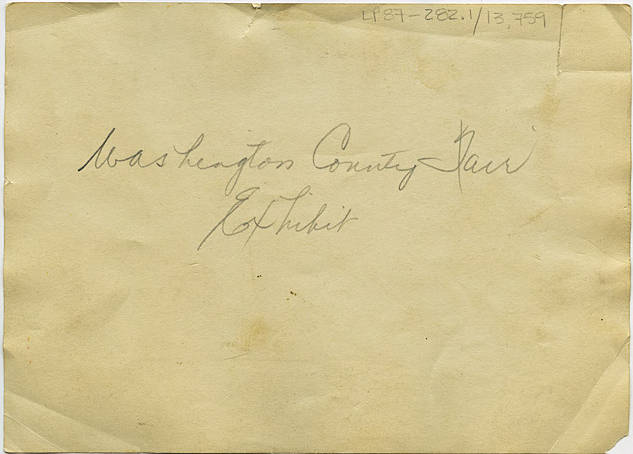 LP87-282.1/13,759
Washington County Fair
Exhibit